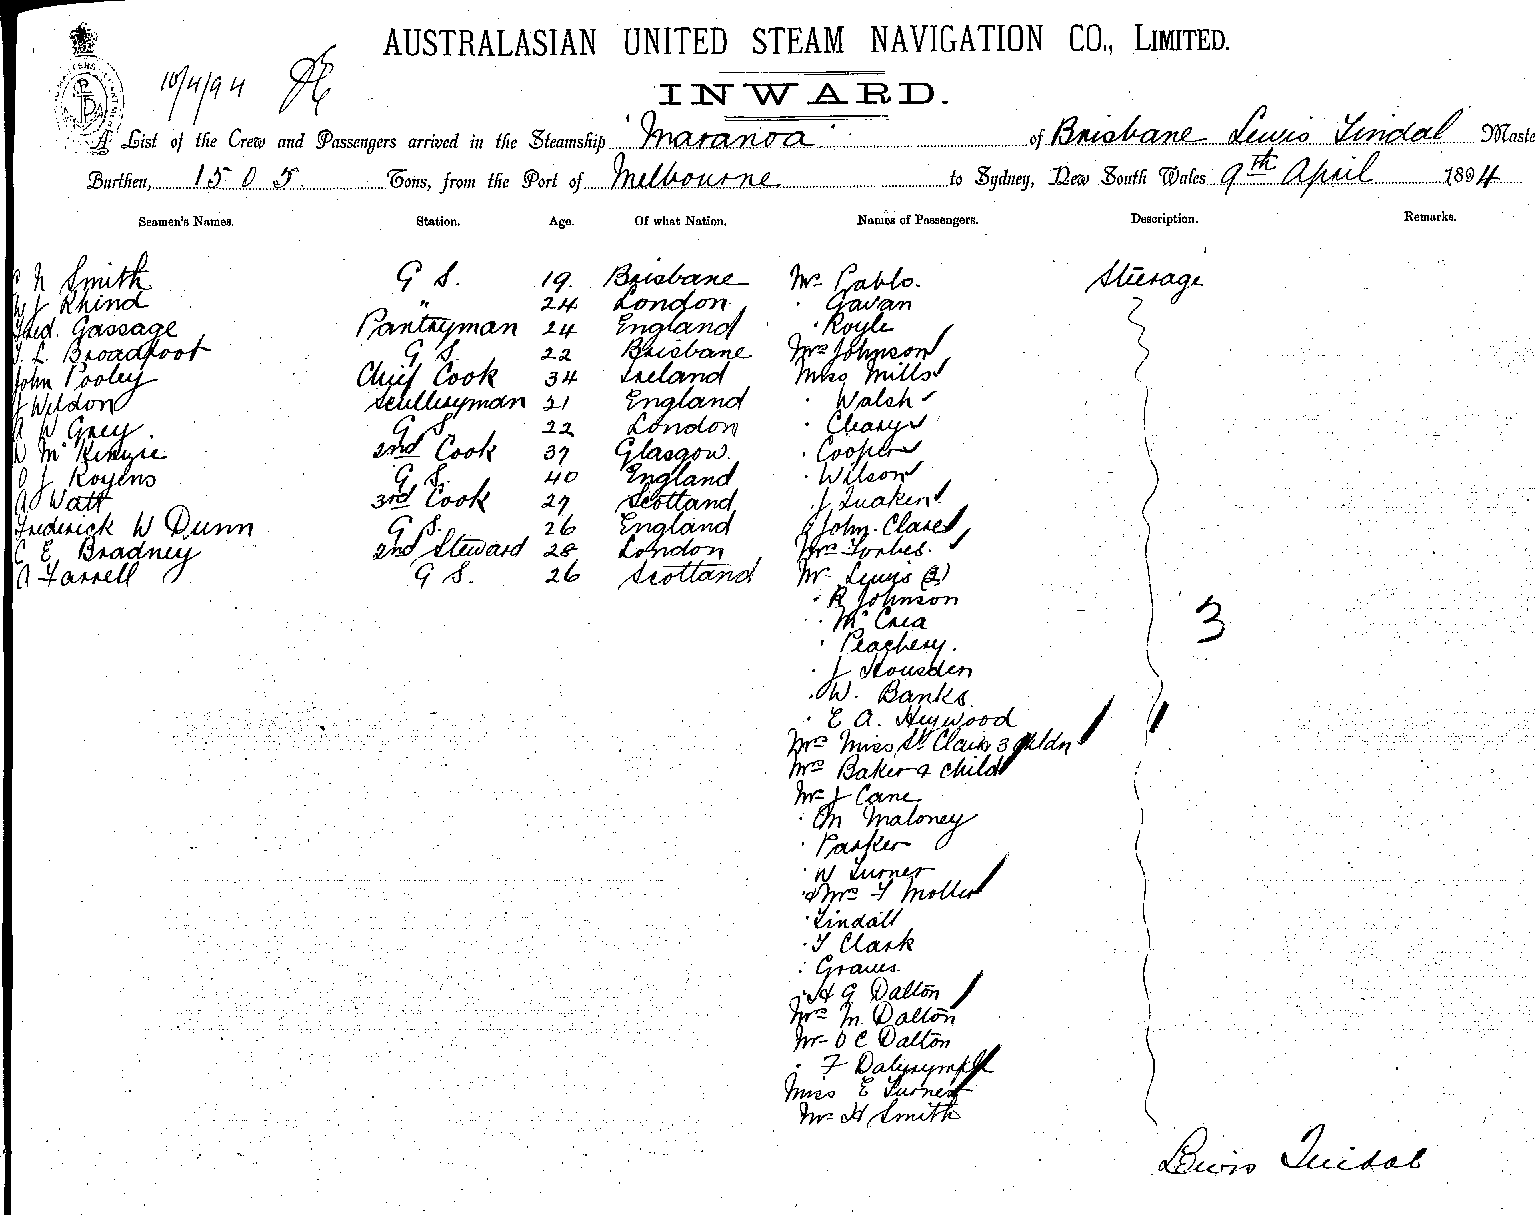 AUSTRALASIAN UNITED STEAM NAVIGATION CO., LIMITED.
10/4/94
INWARD.
A List of the Crew and Passengers arrived in the Steamship "Maranoa" of Brisbane Lewis Tindal Maste
Burthen, 1505. Tons, from the Port of Melbourne to Sydney, New South Wales 9th April 1894
Seamen's Names. Station. Age. Of what Nation. Names of Passengers. Description. Remarks.
N Smith G S. 19. Brisbane Mr Pablo. Steerage
J Rhind " 24 London " Gavan
Fred. Gassage Pantryman 24 England " Royle
L Broadfoot G S. 22 Brisbane Mrs Johnson
John Pooley Chief Cook 34 Ireland Miss Mills
J Weldon Scullryman 21 England " Walsh
W Grey G S. 22 London " Cleary
McKinzie 2nd Cook 37 Glasgow. " Cooper
J Royens G S. 40 England " Wilson
A Watt 3rd Cook 27 Scotland " J
Frederick W Dunn G S. 26 England John Clare
C E Bradney 2nd Steward 28 London Mrs Forbes.
A Farrell G S. 26 Scotland Mr Lewis (2)
" R Johnson
" McCrea
" Peachery.
" J Housden
" W. Banks.
" E A. Heywood
Mrs Miss St Clair 3 chldn
Mrs Baker & child
Mr J Cane
" M Maloney
" Parker
" W Turner
" & Mrs F Moller
" Tindall
" T Clark
" Graves.
" H G Dalton
Mrs M. Dalton
Mr O C Dalton
" F Dalyrymple
Miss E Turner
Mr H Smith
3
Lewis Tindal